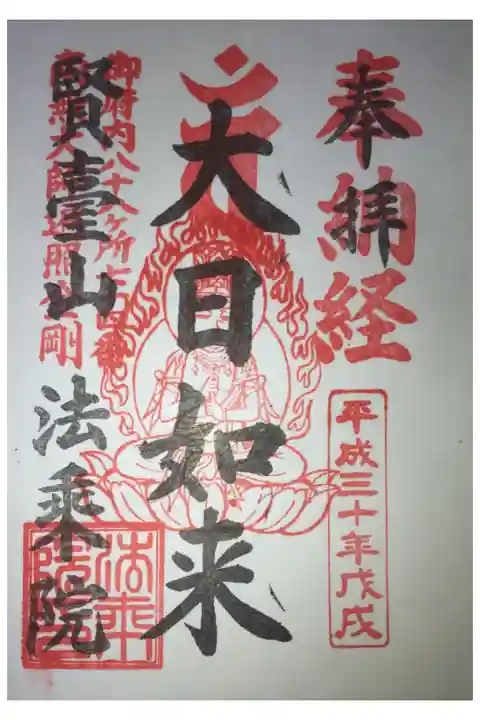 奉拝
奉納経
平成三十年戊戌
大日如来
御府内八十八ヶ所七十四番
南無大師遍照金剛
賢臺山 法乗院
法乗院